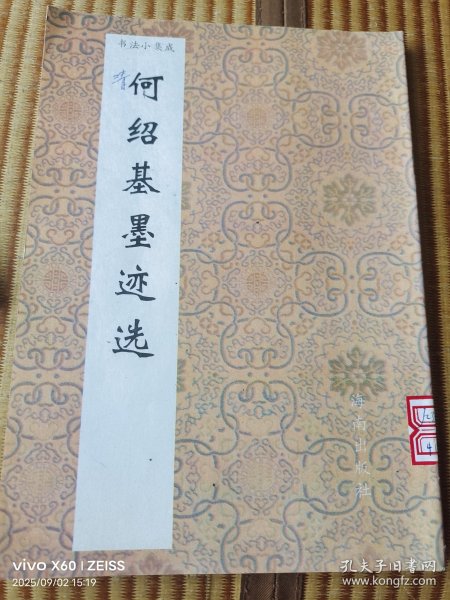 书法小集成
清
何绍基墨迹选
海南出版社
4
vivo X60 | ZEISS
2025/09/02 15:19
孔夫子旧书网
www.kongfz.com